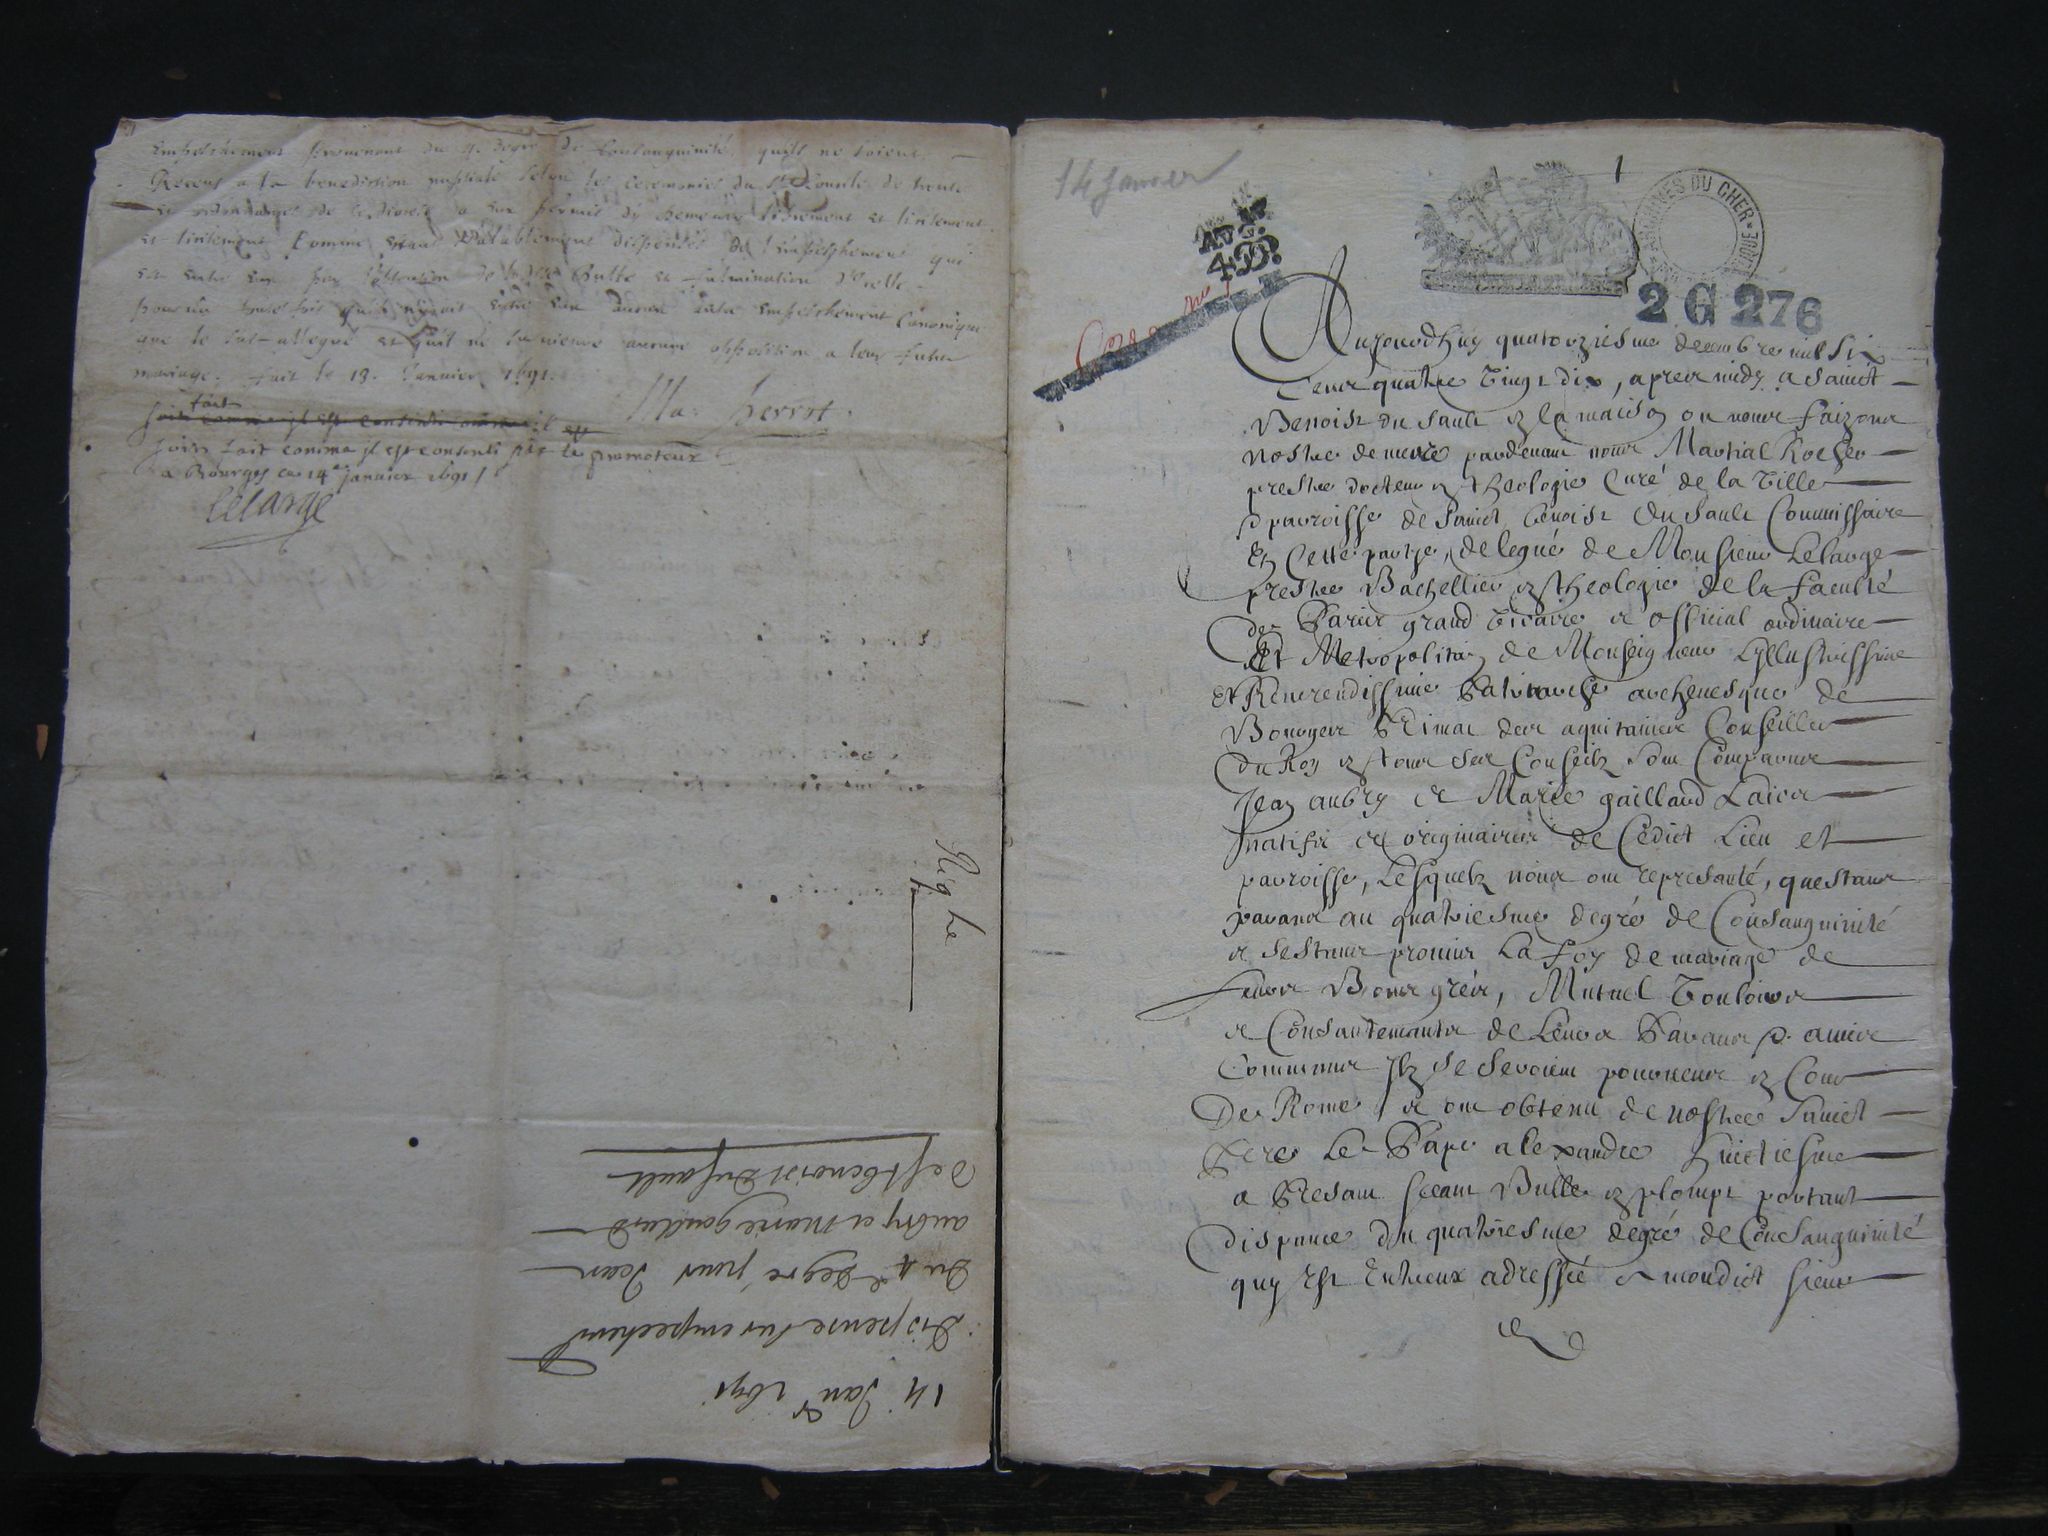 Empeschement provenant du 4. degré de Consanguinité qu'ils ne soient
Receus a la benediction nuptiale selon les ceremonies du St Concile de trente
et ordonnances de ce diocese
et licitement Comme estant Valablement dispensés de l'empeschement qui
est entre eux par de la Bulle et fulmination d'icelle
pourvu qu'il n'y ait entre eux aucun autre empeschement Canonique
que le sus-allegué et qu'il ne survienne aucune opposition a leur futur
mariage. fait le 13. Janvier 1691.
Ma: Perrot
soit fait comme il est consenti par le promoteur
a Bourges ce 14e janvier 1691
Lelarge
Righe
14 Janer 1691
dispense sur empechemt
du 4e degré pour Jean
aubry et Marie gaillard
de St benoist dusault
14 Janvier
1
ARCHIVES DU CHER
2 G 276
Aujourdhuy quatorziesme decembre mil six
Cens quatre vingt dix, apres midy a Sainct
Benoist du Sault en la maison ou nous faizons
nostre demeure pardevant nous Martial Rocher
prestre docteur en theologie Curé de la Ville
& parroisse de Sainct benoist du Sault Commissaire
En Cette partye, delegué de Monsieur Lelarge
prestre Bachellier en theologie de la faculté
de Paris grand vicaire et official ordinaire
Et Metropolitain de Monseigneur Lyllustrissime
Et Reverendissime Patriarche archevesque de
Bourges Primat des aquitaines Conseiller
du Roy en tous ses Conseilz sont Comparus
Jean aubry et Marie gaillard Laics
natifs et originaires de Cedict Lieu et
parroisse, Lesquelz nous ont represanté, questans
parans au quatriesme degré de Consanguinité
et sestans promis La foy de mariage de
leurs Bons gréés, Mutuel vouloirs
et Consantemants de Leurs Parans & amis
Communs ilz se seroient pourveus en Cour
De Rome et ont obtenu de nostre Sainct
Pere Le Pape alexandre huictiesme
a Presant seant Bulle en plompt portant
dispance du quatriesme degré de Consanguinité
quy Est Entreux adressée a mondict sieur